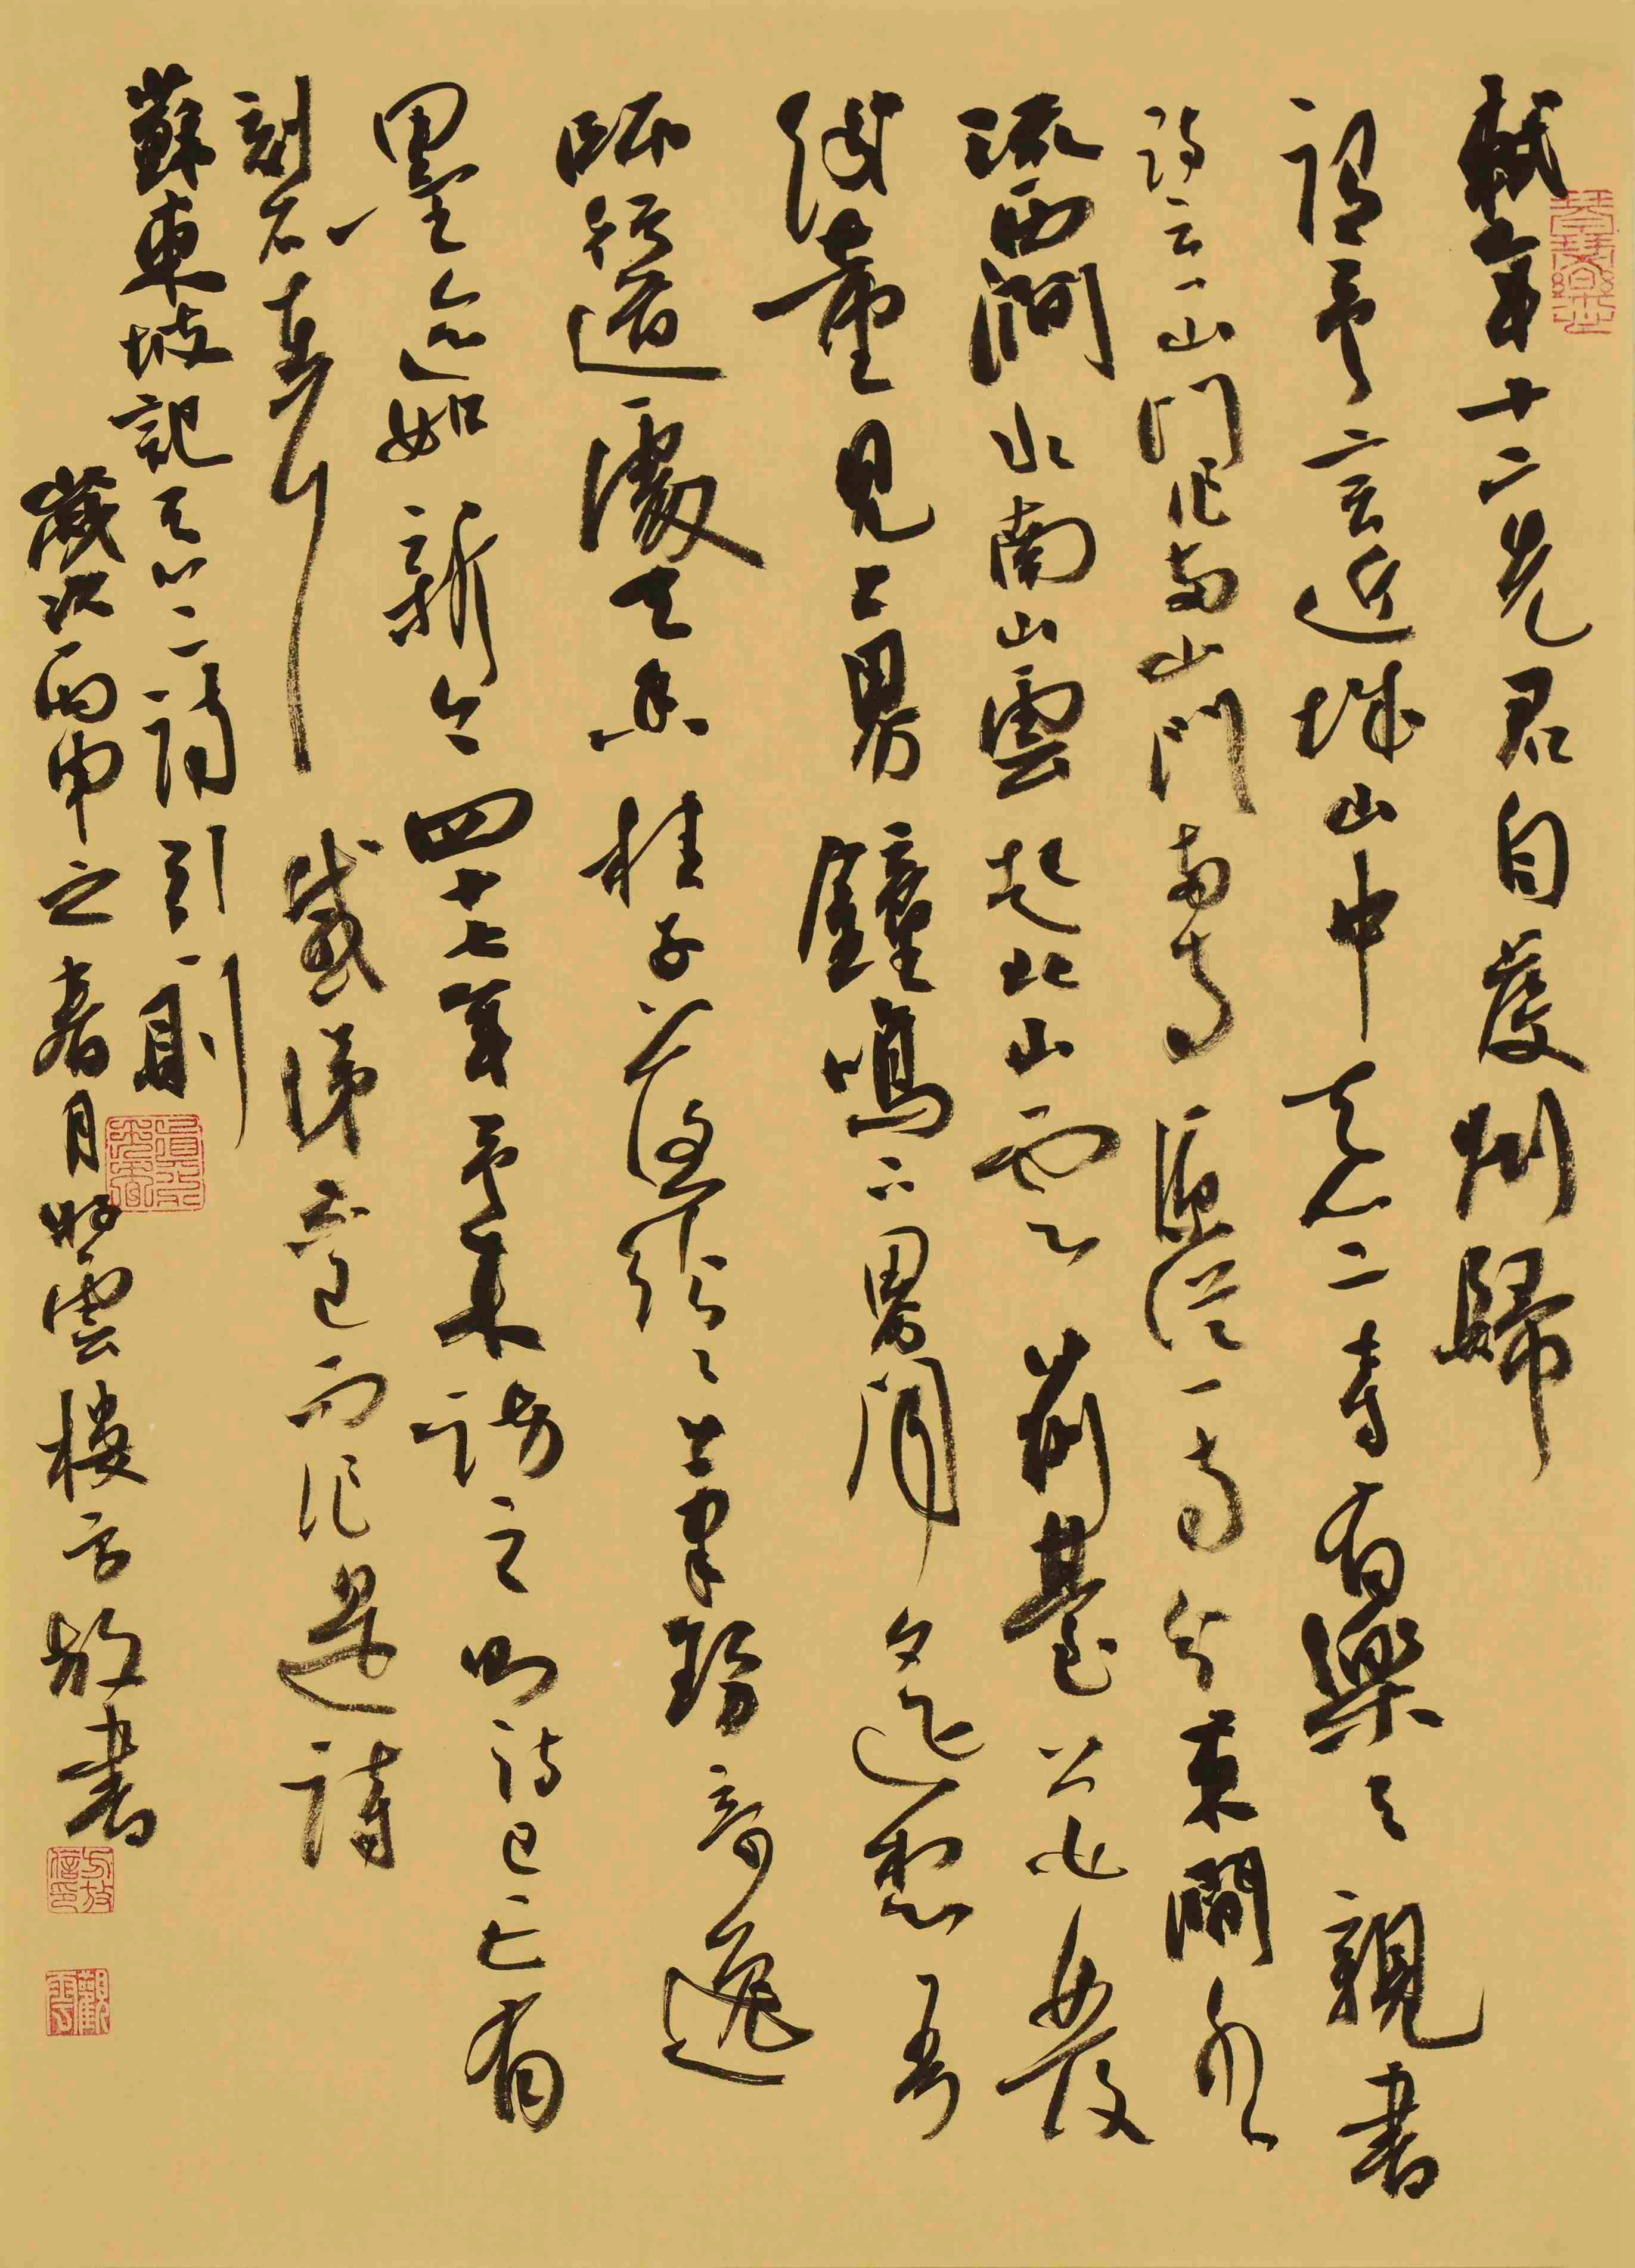 軾年十二先君自虔州歸
謂予言近城山中天竺寺有樂天親書
詩云一山門作兩山門兩寺原從一寺分東澗水
流西澗水南山雲起北山雲前臺花發
後臺見上界鐘鳴下界聞遙想吾
師行道處天香桂子落紛紛筆勢奇逸
墨迹如新今四十七年予來訪之則詩已亡有
刻石在耳感涕不已而作是詩
蘇東坡記天竺詩引一則
歲次丙申之春月 雲樓方放書